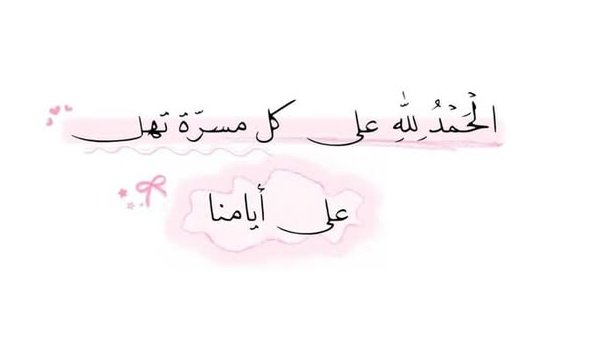 الْحَمْدُ لِلّٰهِ على كل مسرّة تهل
على أيامنا